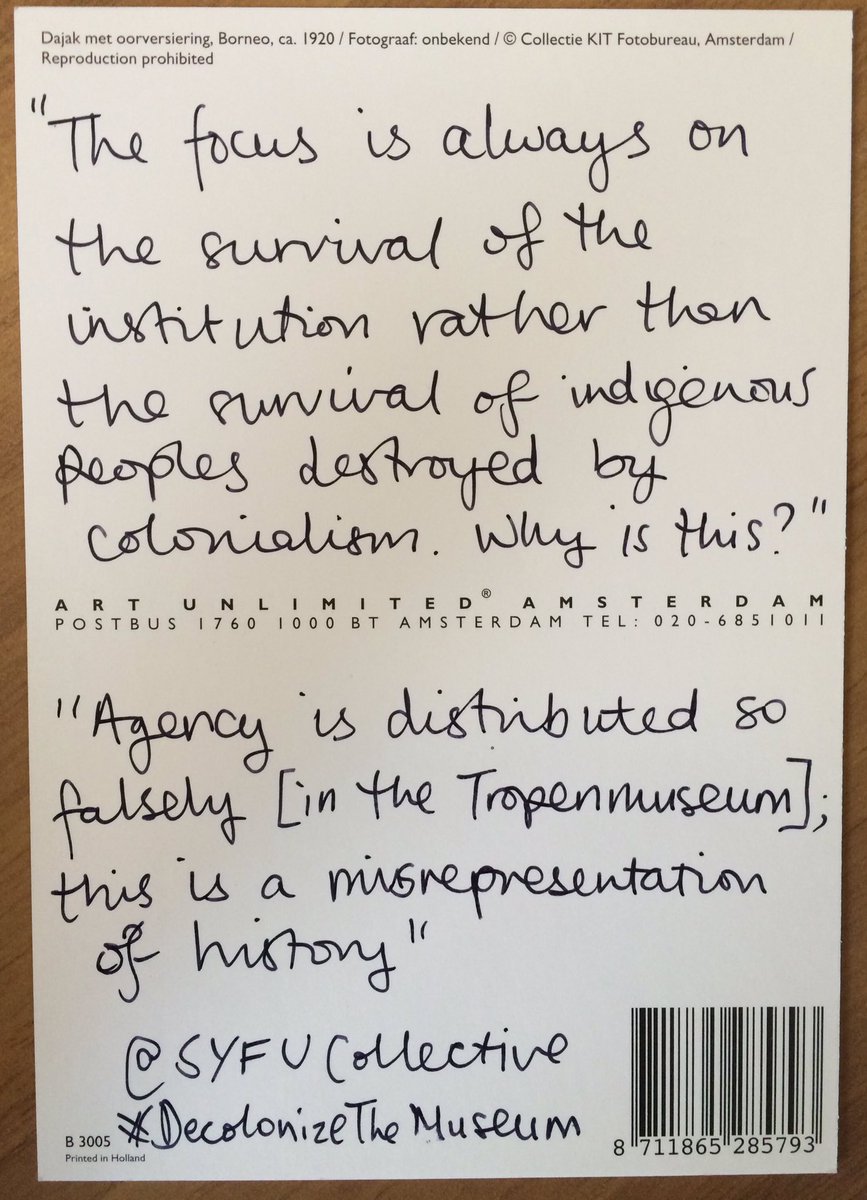 Dajak met oorversiering, Borneo, ca. 1920 / Fotograaf: onbekend / © Collectie KIT Fotobureau, Amsterdam /
Reproduction prohibited
"The focus is always on
the survival of the
institution rather than
the survival of indigenous
peoples destroyed by
colonialism. Why is this?"
ART UNLIMITED® AMSTERDAM
POSTBUS 1760 1000 BT AMSTERDAM TEL: 020-6851011
"Agency is distributed so
falsely [in the Tropenmuseum];
this is a misrepresentation
of history"
@SYFU Collective
#DecolonizeTheMuseum
B 3005
Printed in Holland
8 711865 285793